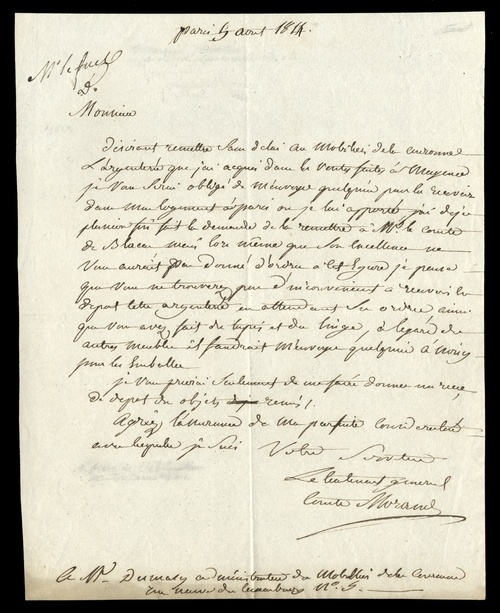 paris 5 aout 1814.
Mr le
Do.
Monsieur
désirant remettre sans delai au Mobilier de la couronne
L'argenterie que j'ai acquis dans les Ventes faites à Mayence
je Vous serai obligé de M'envoyer quelqu'un pour la recevoir
dans mon logement à paris ou je l'ai apporté j'ai deja
plusieurs fois fait la demande de la remettre à Mr. le comte
de Blacas mais lors même que Son Excellence ne
Vous aurait pas donné d'ordre à cet Egard je pense
que Vous ne trouverez pas d'inconvenient à recevoir en
depot cette argenterie en attendant Ses ordres ainsi
que vous avez fait des tapis et du linge, à legard des
autres meubles il faudrait M'envoyer quelqu'un à
pour les Emballer
je Vous prierai Seulement de me faire donner un recu
de depot des objets remis.
Agréez l'assurance de Ma parfaite Consideration
avec laquelle je Suis Votre Serviteur
Le lieutenant general
Comte Morand
A Mr. administrateur du Mobilier de la Couronne
No. 5.